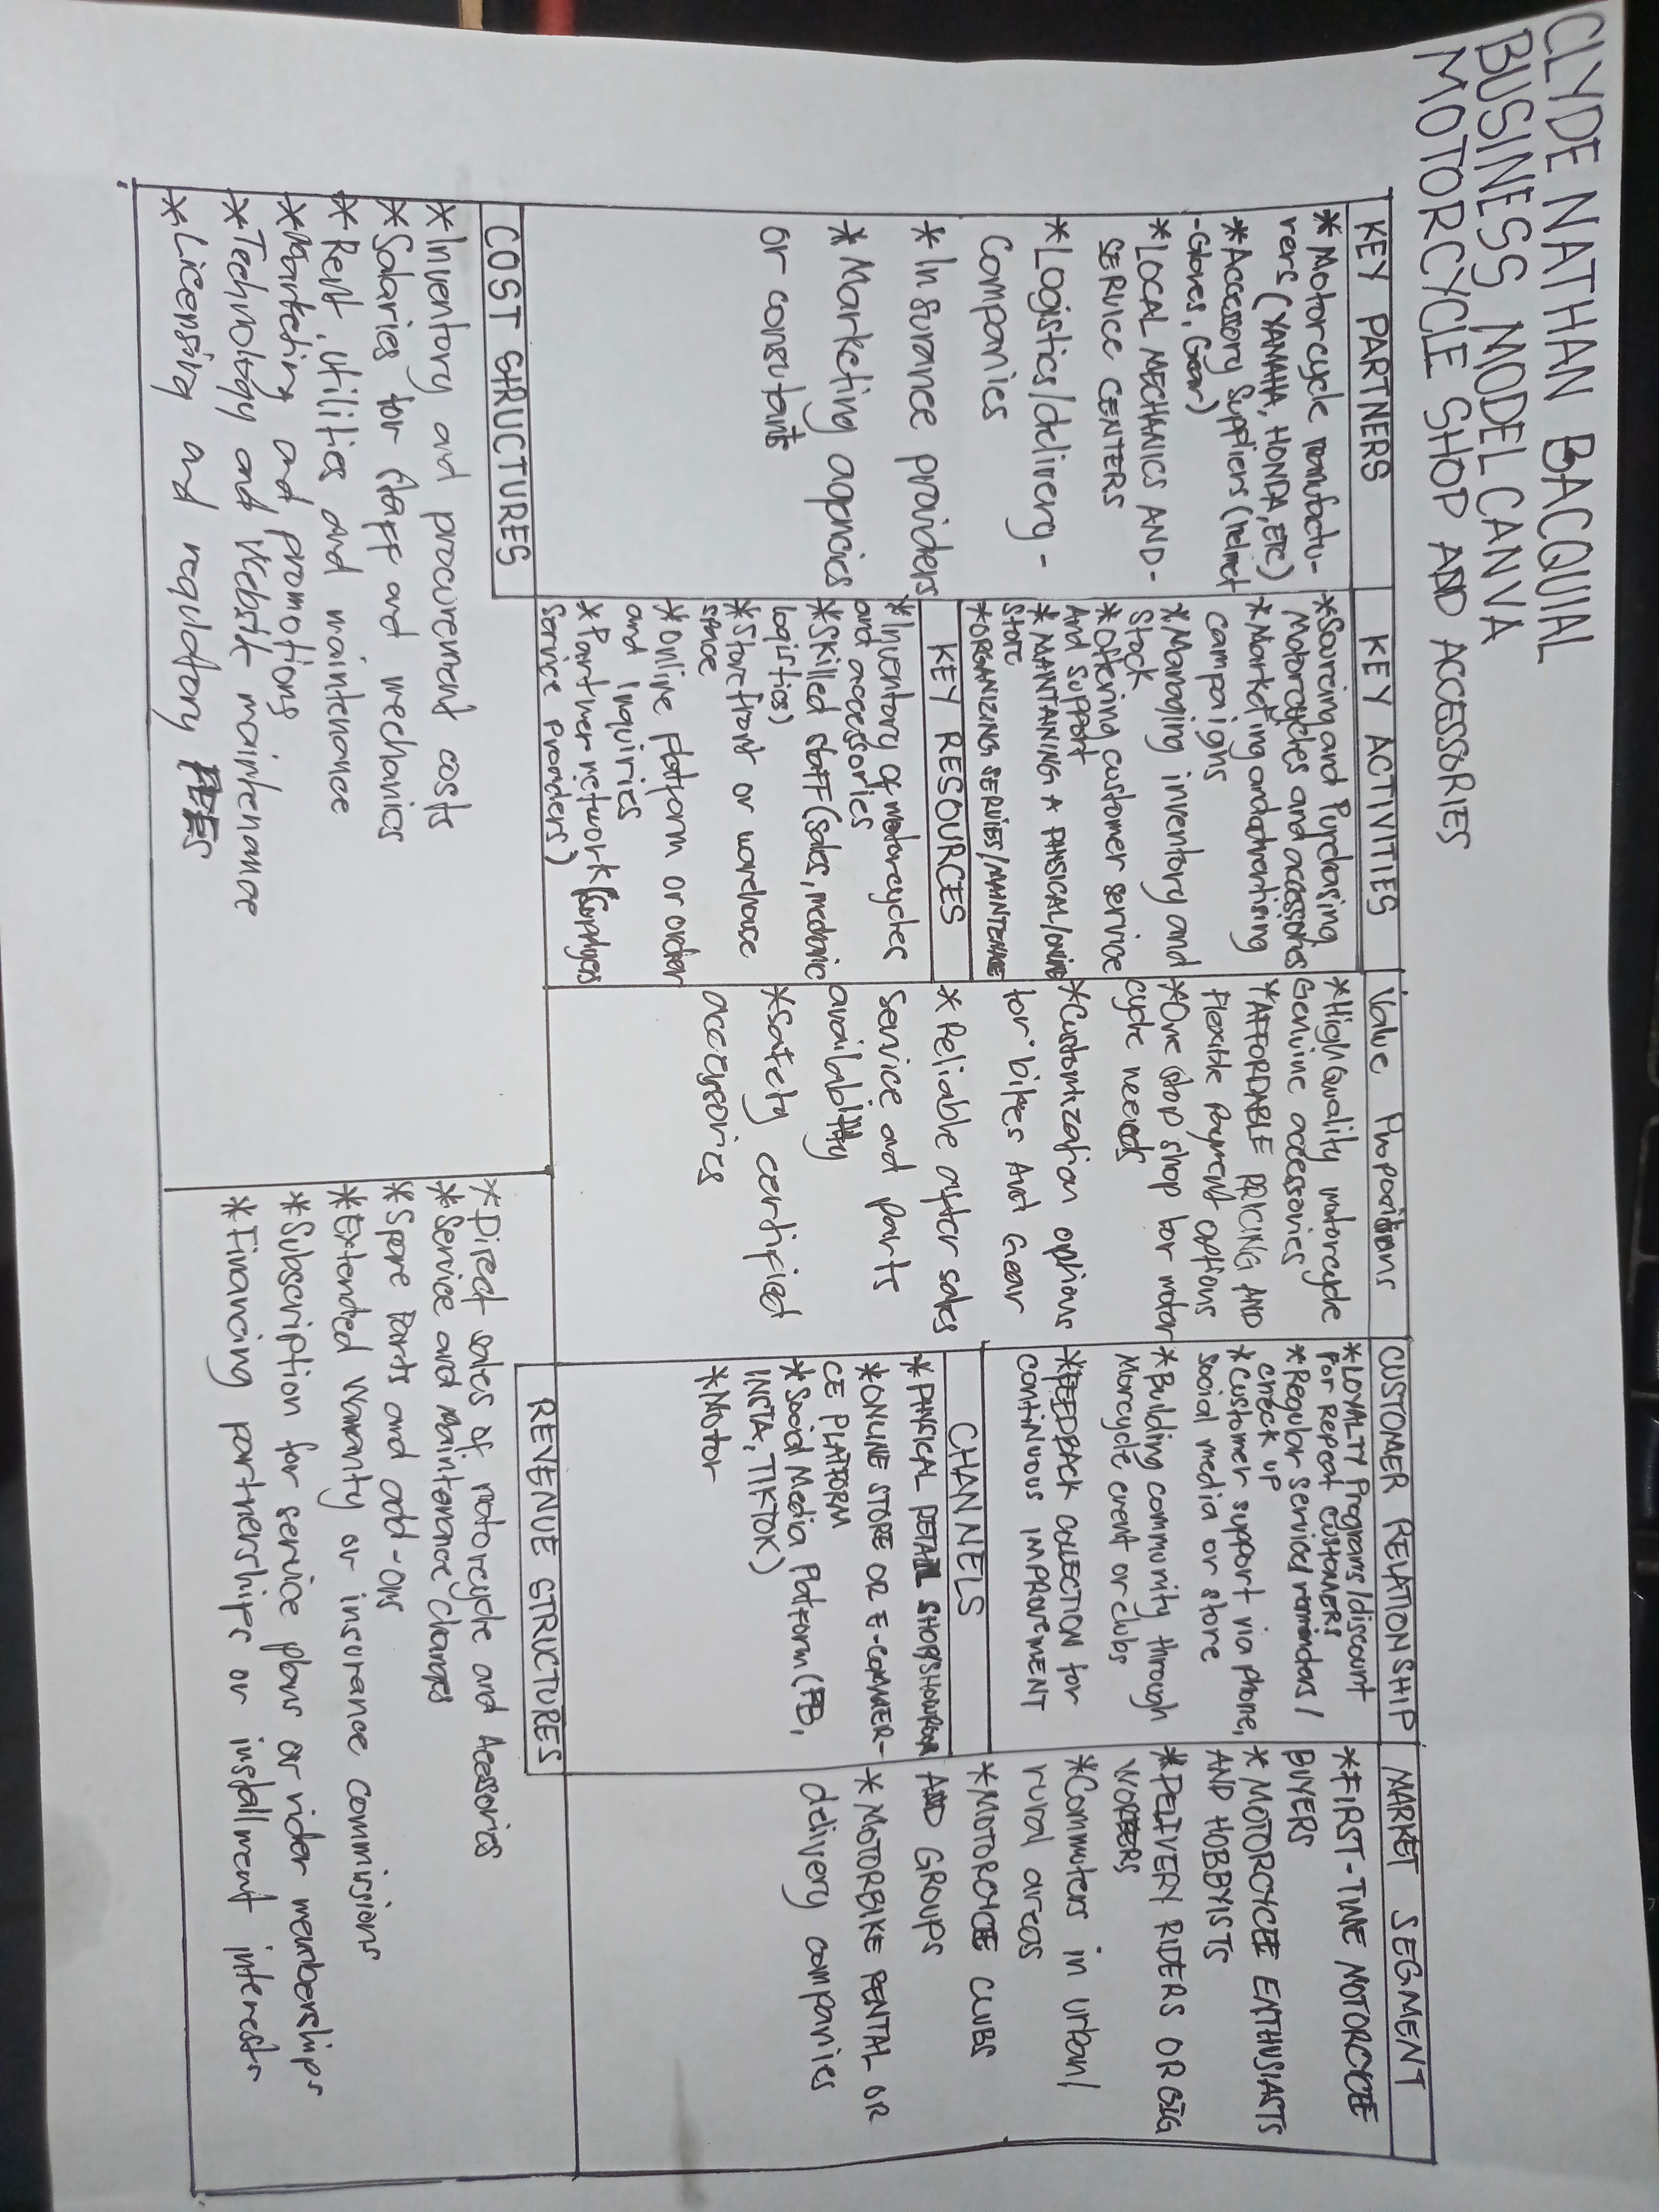 CLYDE NATHAN BACQUIAL
BUSINESS MODEL CANVA
MOTORCYCLE SHOP AND ACCESSORIES
KEY PARTNERS
* Motorcycle manufactu-
rers (YAMAHA, HONDA, ETC)
* Accessory Suppliers (helmet
-Gloves, Gear)
* LOCAL MECHANICS AND-
SERVICE CENTERS
* Logistics/delivery-
Companies
* Insurance providers
* Marketing agencies
or consultants
KEY ACTIVITIES
* Sourcing and Purchasing
Motorcycles and accessories
* Marketing and advertising
campaigns
* Managing inventory and
Stock
* Offering customer service
And Support
* MAINTAINING A PHYSICAL/ONLINE
STORE
* ORGANIZING SERVIES/MAINTENANCE
KEY RESOURCES
* Inventory of motorcycles
and accessories
* Skilled staff (Sales, mechanic
logistics)
* Storefront or warehouse
space
* Online platform or order
and inquiries
* Partner network (Suppliers
Service Providers)
Value Propositions
* High Quality motorcycle
Genuine accessories
* AFFORDABLE PRICING AND
Flexible Payment options
* One stop shop for motor
cycle needs
* Customization options
for bikes And Gear
* Reliable after sales
service and parts
availability
* Safety certified
accessories
CUSTOMER RELATIONSHIP
* LOYALTY Programs/discount
For Repeat CUSTOMERS
* Regular service reminders/
check up
* Customer support via phone,
social media or store
* Building community through
Morcycle event or clubs
* FEEDBACK COLLECTION for
continuous IMPROVEMENT
CHANNELS
* PHYSICAL RETAIL SHOP/SHOWROOM
* ONLINE STORE OR E-COMMER-
CE PLATFORM
* Social Media Platform (FB,
INSTA, TIKTOK)
* Motor
MARKET SEGMENT
* FIRST-TIME MOTORCYCLE
BUYERS
* MOTORCYCLE ENTHUSIASTS
AND HOBBYISTS
* DELIVERY RIDERS OR GIG
WORKERS
* Commuters in urban/
rural areas
* MOTORCYCLE CLUBS
AND GROUPS
* MOTORBIKE RENTAL OR
delivery companies
COST STRUCTURES
* Inventory and procurement costs
* Salaries for staff and mechanics
* Rent, utilities and maintenance
* Marketing and promotions
* Technology and Website maintenance
* Licensing and regulatory FEES
REVENUE STRUCTURES
* Direct sales of motorcycle and Acessories
* Service and Maintenance Charges
* Spare Parts and add-ons
* Extended Warranty or insurance commissions
* Subscription for service plans or rider memberships
* Financing partnerships or installment interests